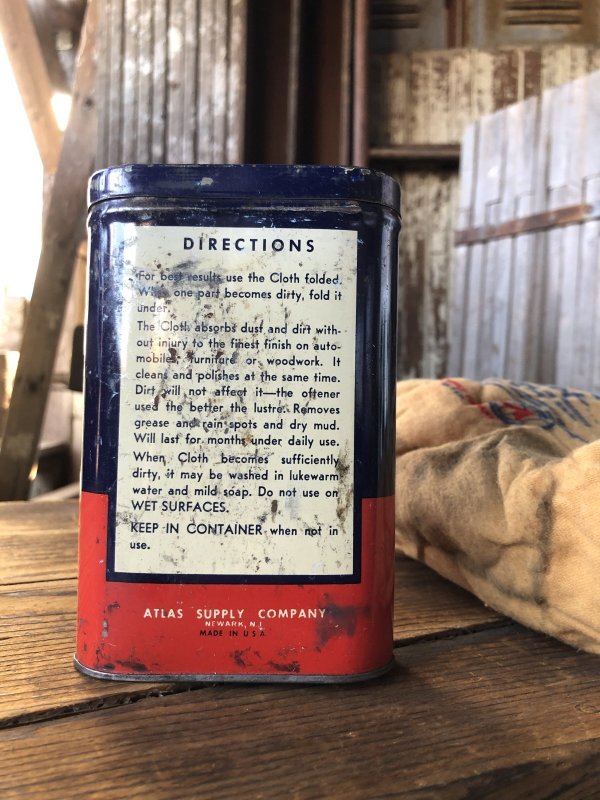 DIRECTIONS
For best results use the Cloth folded.
When one part becomes dirty, fold it
under.
The Cloth absorbs dust and dirt with-
out injury to the finest finish on auto-
mobiles, furniture or woodwork. It
cleans and polishes at the same time.
Dirt will not affect it—the oftener
used the better the lustre. Removes
grease and rain spots and dry mud.
Will last for months under daily use.
When Cloth becomes sufficiently
dirty, it may be washed in lukewarm
water and mild soap. Do not use on
WET SURFACES.
KEEP IN CONTAINER when not in
use.
ATLAS SUPPLY COMPANY
NEWARK, N.J.
MADE IN U.S.A.